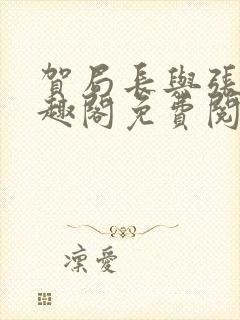 賀局長與張
趣閣免費閱
凜愛